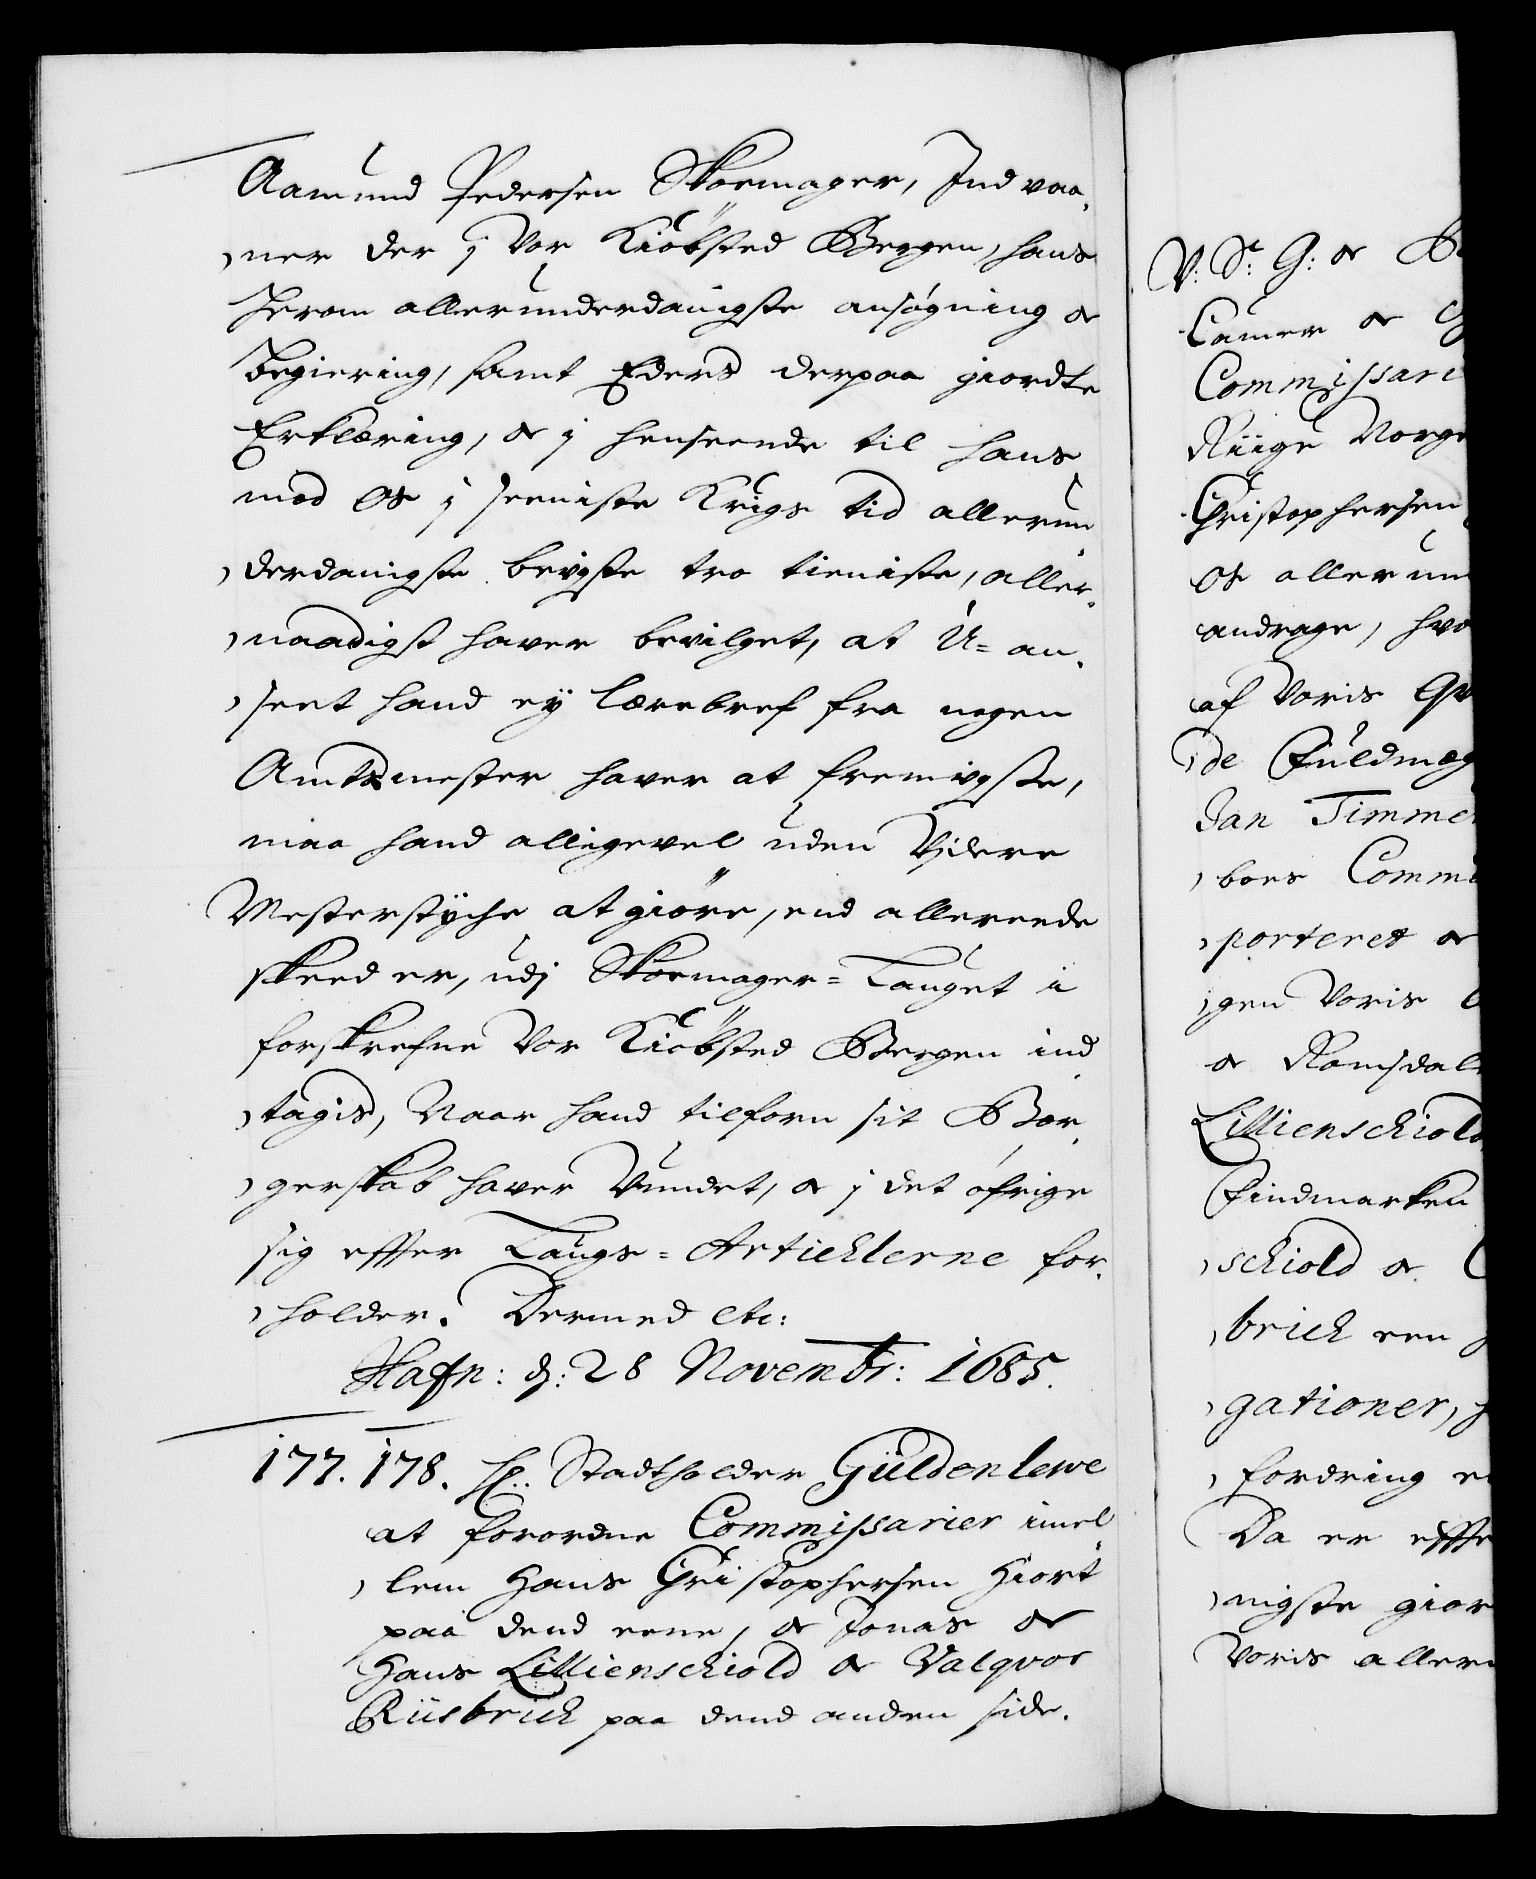 Aamund Pedersen Skoemager, Indvaa-
ner der j Vor Kiöbsted Bergen, hans
herom allerunderdanigste ansøgning oc
begiering, samt Eders derpaa giordte
Erklæring, oc j henseende til hans
mod Os j seeniste Krigs tid allerun
derdanigste beviste tro tieniste, aller-
naadigst haver bevilget, at U-an-
seet hand ey lærebref fra nogen
Amtsmester haver at fremvijse,
maa hand alligevel uden Videre
Mesterstycke at giöre, end allereede
skeed er, udj Skoemager-Lauget i
forskrefne Vor Kiöbsted Bergen ind
tagis, Naar hand tilforn sit Bor-
gerskab haver Vundet, oc j det öfrige
sig effter Laugs-Articklerne for-
holder. Dermed etc:
Hafn: d: 28 Novembr: 1685.
177. 178. H. Stadtholder Güldenlewe
at forordne Commissarier imel
lem Hans Christophersen Hiort
paa dend eene, oc Jonas oc
Hans Lillienschiold oc Valqvor
Riisbrich paa dend anden side.
V: St: G: oc
Camer oc
Commissari
Riige Norge
Christophersen
Os allerun
andrage, hvo
af Voris
de Fuldmæg
Jan Timme
boes Commi
porteret oc
gen Voris
oc Romsdal
Lillienschiold
Findmarken
schiold oc
brich een
gationer,
fordring
Da er effte
nigste gior
Voris aller